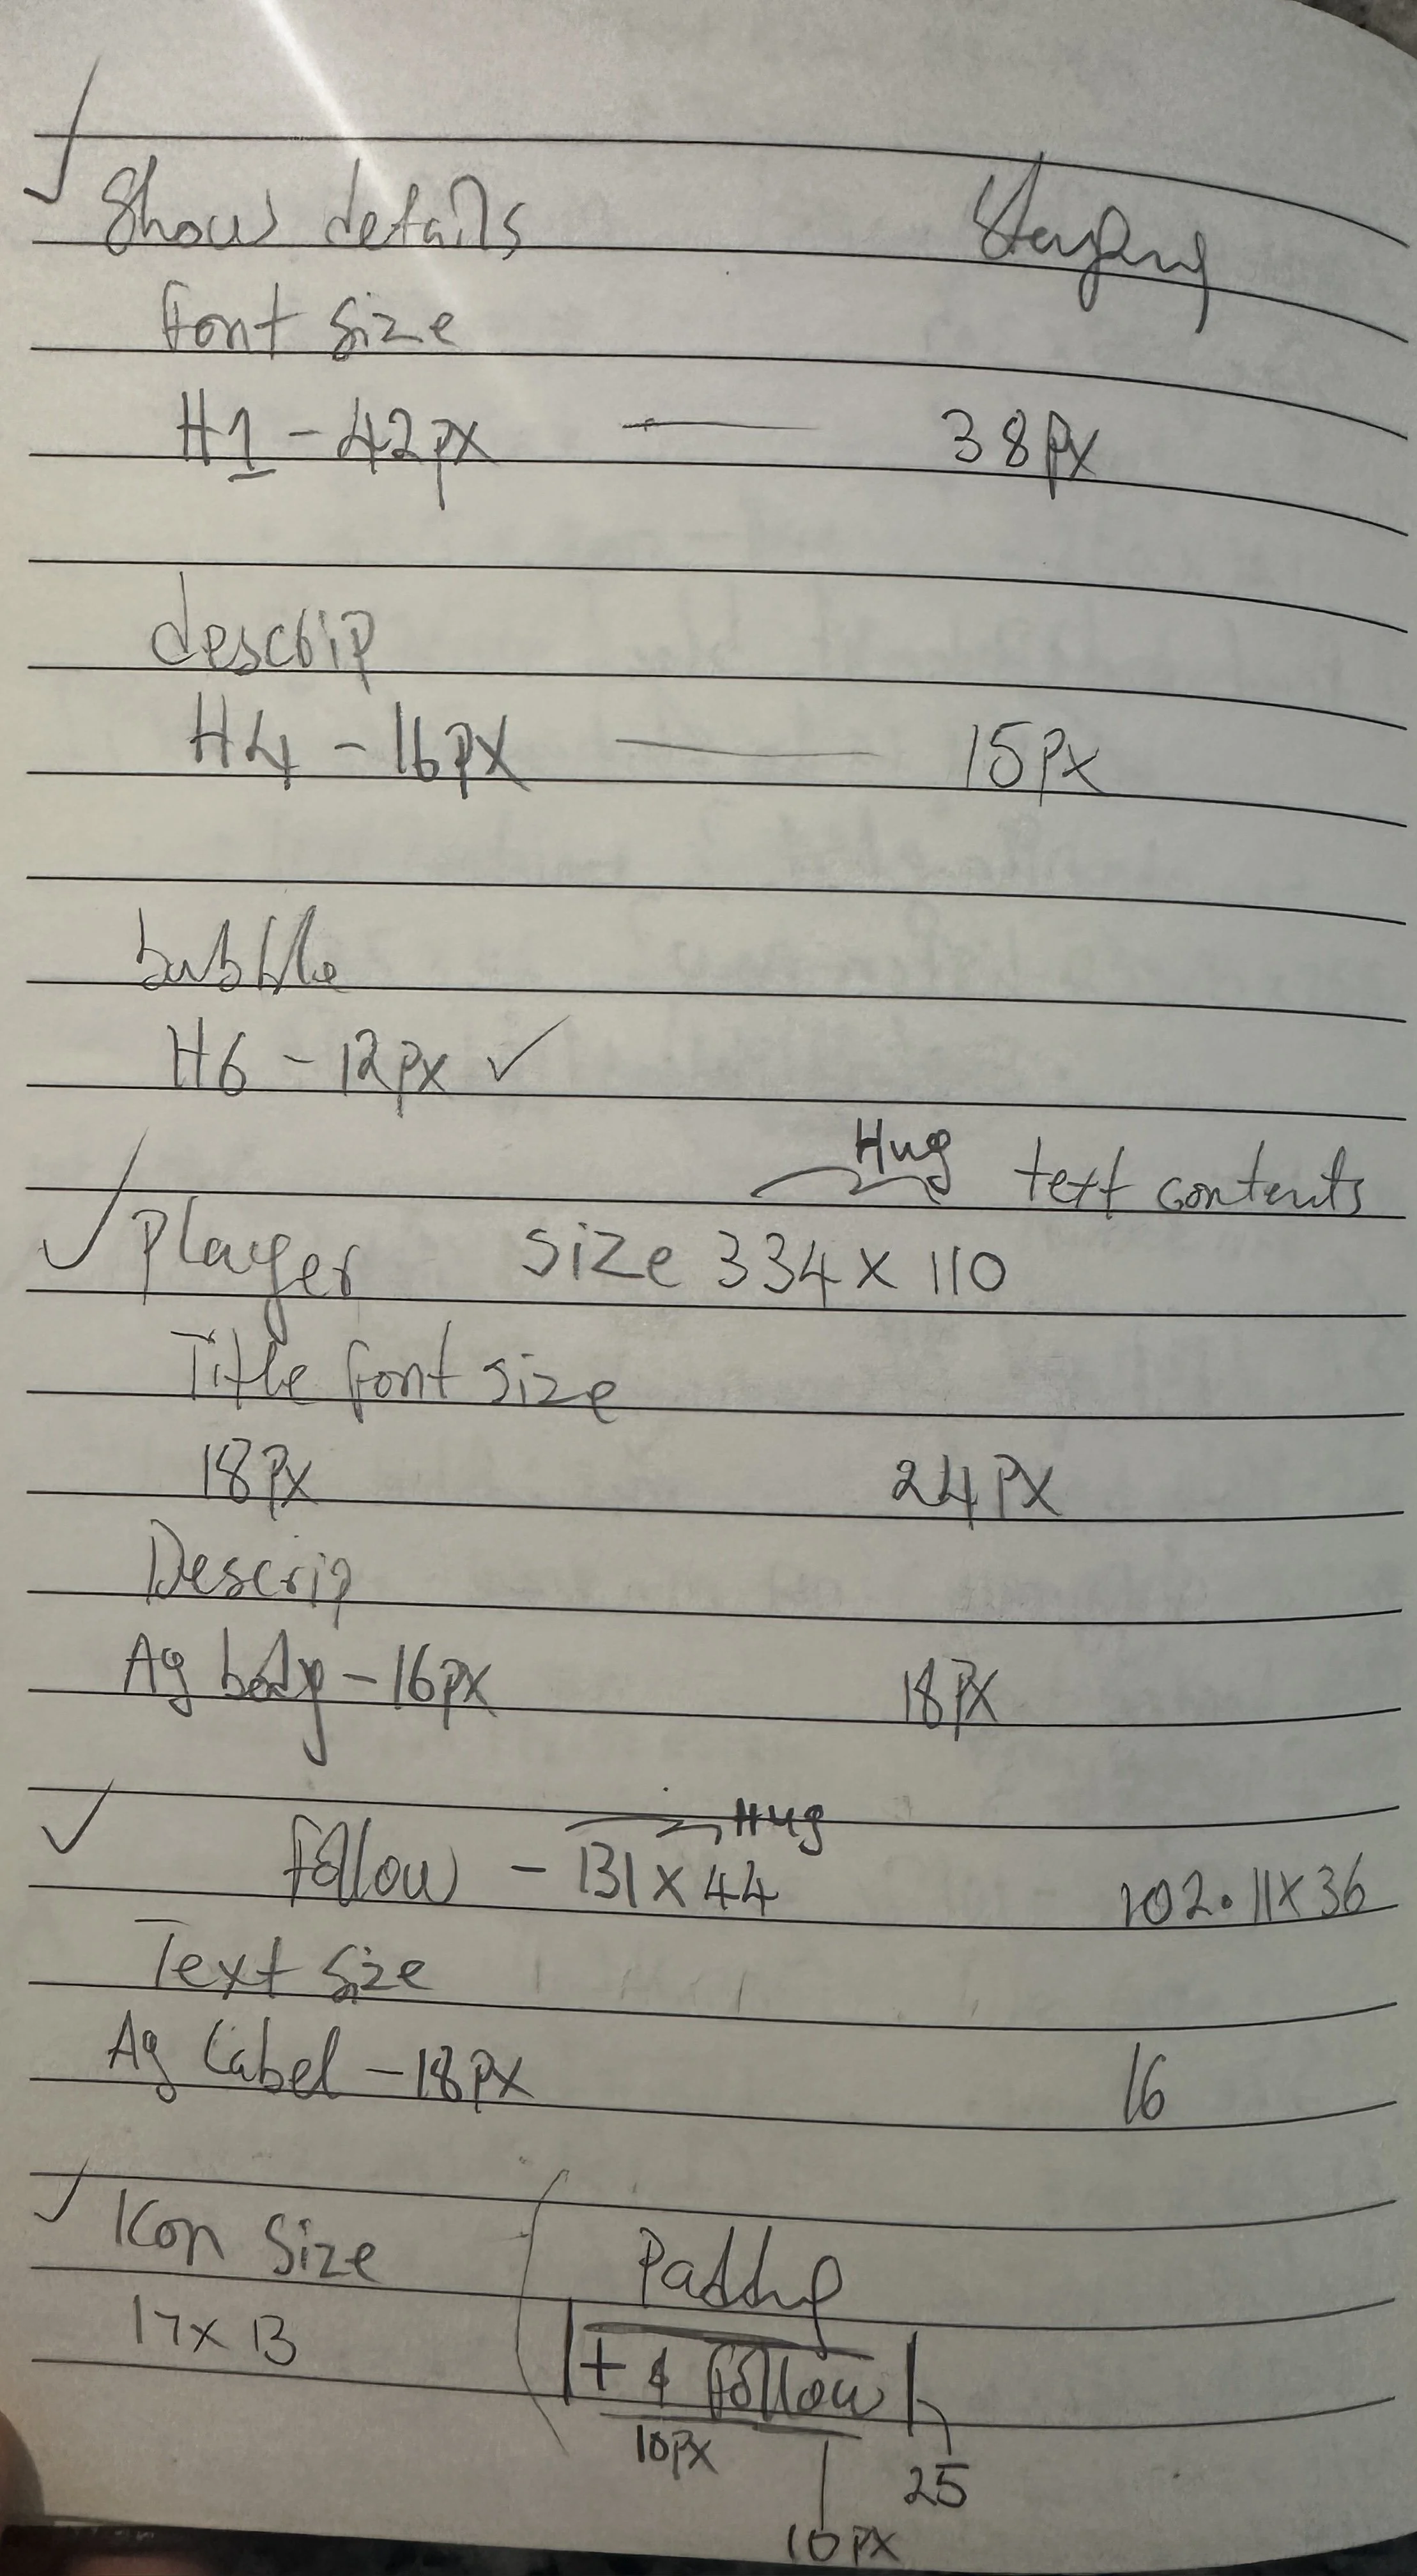 ✓ Show details Staging
font size
H1 - 42px — 38px
descrip
H4 - 16px — 15px
bubble
H6 - 12px ✓
Hug text contents
✓ Player size 334 x 110
Title font size
18px 24px
Descrip
Ag body - 16px 18px
Hug
✓ follow - 131 x 44 102.11 x 36
Text size
Ag Label - 18px 16
✓ Icon Size Padding
17 x 13 + & follow
10px 25
10px